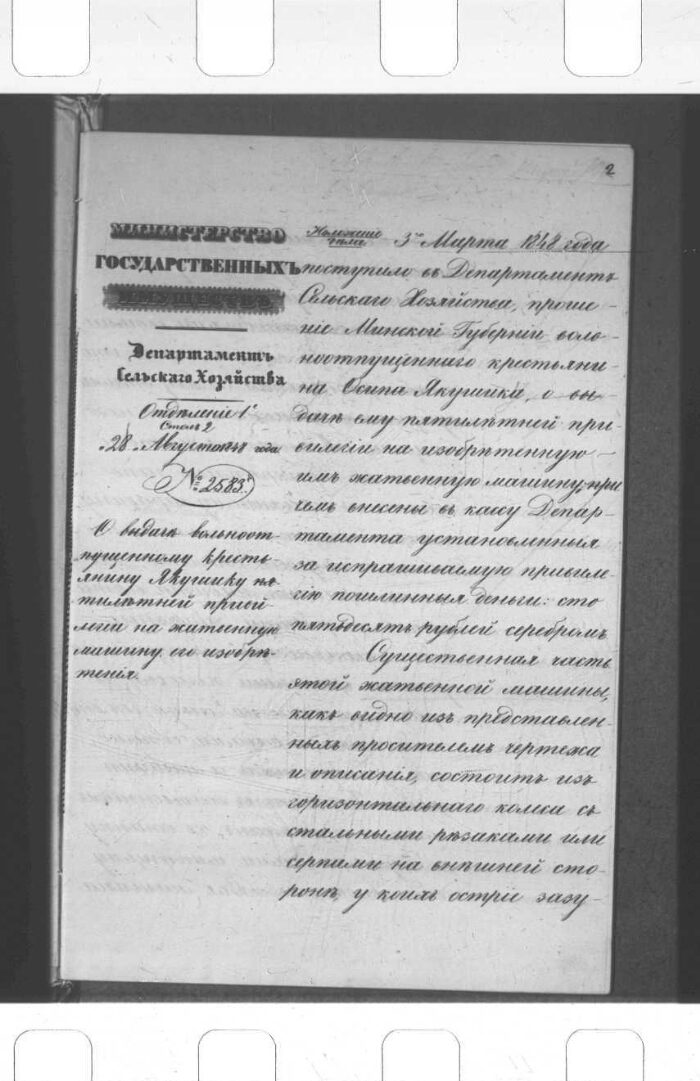 2
МИНИСТЕРСТВО
ГОСУДАРСТВЕННЫХЪ
ИМУЩЕСТВЪ.
Департаментъ
Сельскаго Хозяйства
Отдѣленіе 1е
Столъ 2
28 Августа 1848 года
№ 2583.
О выдачѣ вольноот
пущенному кресть
янину Якушику пя
тилѣтней приви
легіи на жатвенную
машину его изобрѣ
тенія.
3го Марта 1848 года
поступило въ Департаментъ
Сельскаго Хозяйства, проше
ніе Минской Губерніи воль
ноотпущеннаго крестьяни
на Осипа Якушика, о вы
дачѣ ему пятилѣтней при
вилегіи на изобрѣтенную
имъ жатвенную машину, при
чемъ внесены въ кассу Депар
тамента установленныя
за испрашиваемую привиле
гію пошлинныя деньги: сто
пятьдесятъ рублей серебромъ
Существенная часть
этой жатвенной машины,
какъ видно изъ представлен
ныхъ просителемъ чертежа
и описанія, состоитъ изъ
горизонтальнаго колеса съ
стальными рѣзаками или
серпами на внѣшней сто-
ронѣ, у коихъ остріе зазу-